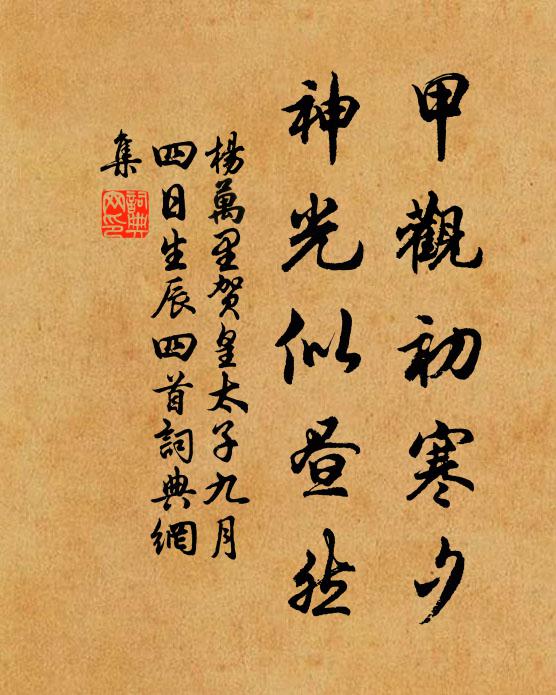 甲觀初寒夕
神光似晝然
楊萬里賀皇太子九月
四日生辰四首詞典網
集
詞典
網印